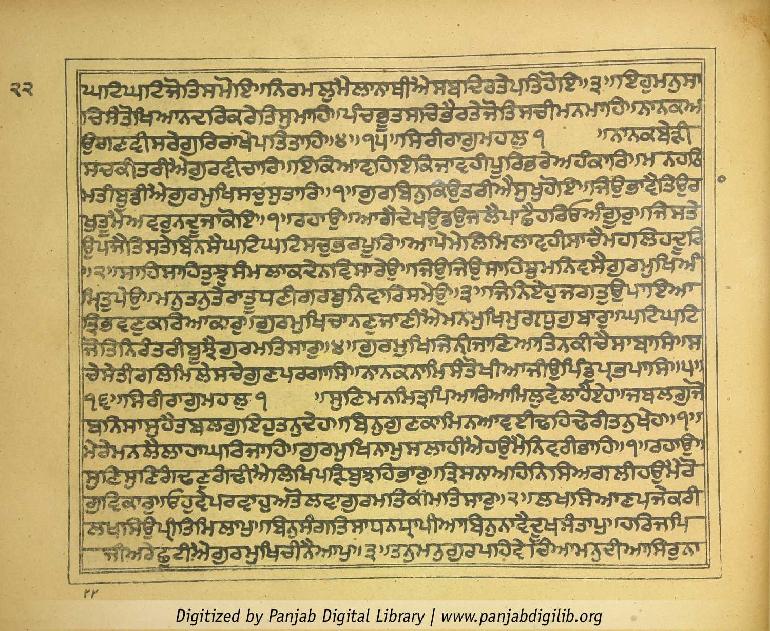 ੨੨
ਘਟਿਘਟਿਜੋਤਿਸਮੋਇ॥ਨਿਰਮਲੁਮੈਲਾਨਾਥੀਐਸਬਦਿਰਤੇਪਤਿਹੋਇ॥੩॥ਇਹੁਮਨੁਸਾ
ਚਿਸੰਤੋਖਿਆਨਦਰਿਕਰੇਤਿਸੁਮਾਹਿ॥ਪੰਚਭੂਤਸਚਿਭੈਰਤੇਜੋਤਿਸਚੀਮਨਮਾਹਿ॥ਨਾਨਕਅ
ਉਗਣਵੀਸਰੇਗੁਰਿਰਾਖੇਪਤਿਤਾਹਿ॥੪॥੧੫॥ਸਿਰੀਰਾਗੁਮਹਲੁ ੧ ॥ਨਾਨਕਬੇੜੀ
ਸਚਕੀਤਰੀਐਗੁਰਵੀਚਾਰਿ॥ਇਕਿਆਵਹਿਇਕਿਜਾਵਹੀਪੂਰਿਭਰੇਅਹੰਕਾਰਿ॥ਮਨਹਠਿ
ਮਤੀਬੂਡੀਐਗੁਰਮੁਖਿਸਚੁਸੁਤਾਰਿ॥੧॥ਗੁਰਬਿਨੁਕਿਉਤਰੀਐਸੁਖੁਹੋਇ॥ਜਿਉਭਾਵੈਤਿਉਰਾ
ਖੁਤੂਮੈਅਵਰੁਨਦੂਜਾਕੋਇ॥੧॥ਰਹਾਉ॥ਆਗੈਦੇਖਉਡਉਜਲੈਪਾਛੈਹਰਿਓਅੰਗੂਰੁ॥ਜਿਸਤੇ
ਉਪਜੈਤਿਸਤੇਬਿਨਸੈਘਟਿਘਟਿਸਚੁਭਰਪੂਰਿ॥ਆਪੇਮੇਲਿਮਿਲਾਵਹੀਸਾਚੈਮਹਲਿਹਦੂਰਿ
॥੨॥ਸਾਹਿਸਾਹਿਤੁਝੁਸੰਮਲਾਕਦੇਨਵਿਸਾਰੇਉ॥ਜਿਉਜਿਉਸਾਹਿਬੁਮਨਿਵਸੈਗੁਰਮੁਖਿਅੰ
ਮ੍ਰਿਤੁਪੇਉ॥ਮਨੁਤਨੁਤੇਰਾਤੂਧਣੀਗਰਬੁਨਿਵਾਰਿਸਮੇਉ॥੩॥ਜਿਨਿਏਹੁਜਗਤੁਉਪਾਇਆ
ਤ੍ਰਿਭਵਣੁਕਰਿਆਕਾਰੁ॥ਗੁਰਮੁਖਿਚਾਨਣੁਜਾਣੀਐਮਨਮੁਖਿਮੁਗਧੁਗੁਬਾਰੁ॥ਘਟਿਘਟਿ
ਜੋਤਿਨਿਰੰਤਰੀਬੂਝੈਗੁਰਮਤਿਸਾਰੁ॥੪॥ਗੁਰਮੁਖਿਜਿਨੀਜਾਣਿਆਤਿਨਕੀਚੈਸਾਬਾਸਿ॥ਸ
ਚੇਸੇਤੀਰਲਿਮਿਲੇਸਚੇਗੁਣਪਰਗਾਸਿ॥ਨਾਨਕਨਾਮਿਸੰਤੋਖੀਆਜੀਉਪਿੰਡੁਪ੍ਰਭਪਾਸਿ॥੫॥
੧੬॥ਸਿਰੀਰਾਗੁਮਹਲੁ ੧ ॥ਸੁਣਿਮਨਮਿਤ੍ਰਪਿਆਰਿਆਮਿਲੁਵੇਲਾਹੈਏਹ॥ਜਬਲਗੁਜੋ
ਬਨਿਸਾਸੁਹੈਤਬਲਗੁਇਹੁਤਨੁਦੇਹ॥ਬਿਨੁਗੁਣਕਾਮਿਨਆਵਈਢਹਿਢੇਰੀਤਨੁਖੇਹ॥੧॥
ਮੇਰੇਮਨਲੈਲਾਹਾਘਰਿਜਾਹਿ॥ਗੁਰਮੁਖਿਨਾਮੁਸਲਾਹੀਐਹਉਮੈਨਿਵਰੀਭਾਹਿ॥੧॥ਰਹਾਉ॥
ਸੁਣਿਸੁਣਿਗੰਢਣੁਗੰਢੀਐਲਿਖਿਪੜਿਬੁਝਹਿਭਾਰੁ॥ਤ੍ਰਿਸਨਾਅਹਿਨਿਸਿਅਗਲੀਹਉਮੈਰੋ
ਗੁਵਿਕਾਰੁ॥ਓਹੁਵੇਪਰਵਾਹੁਅਤੋਲਵਾਗੁਰਮਤਿਕੀਮਤਿਸਾਰੁ॥੨॥ਲਖਸਿਆਣਪਜੇਕਰੀ
ਲਖਸਿਉਪ੍ਰੀਤਿਮਿਲਾਪੁ॥ਬਿਨੁਸੰਗਤਿਸਾਧਨਧ੍ਰਾਪੀਆਬਿਨੁਨਾਵੈਦੂਖਸੰਤਾਪੁ॥ਹਰਿਜਪਿ
ਜੀਅਰੇਛੁਟੀਐਗੁਰਮੁਖਿਚੀਨੈਆਪੁ॥੩॥ਤਨੁਮਨੁਗੁਰਪਹਿਵੇਚਿਆਮਨੁਦੀਆਸਿਰੁਨਾ
੨੨
Digitized by Panjab Digital Library | www.panjabdigilib.org